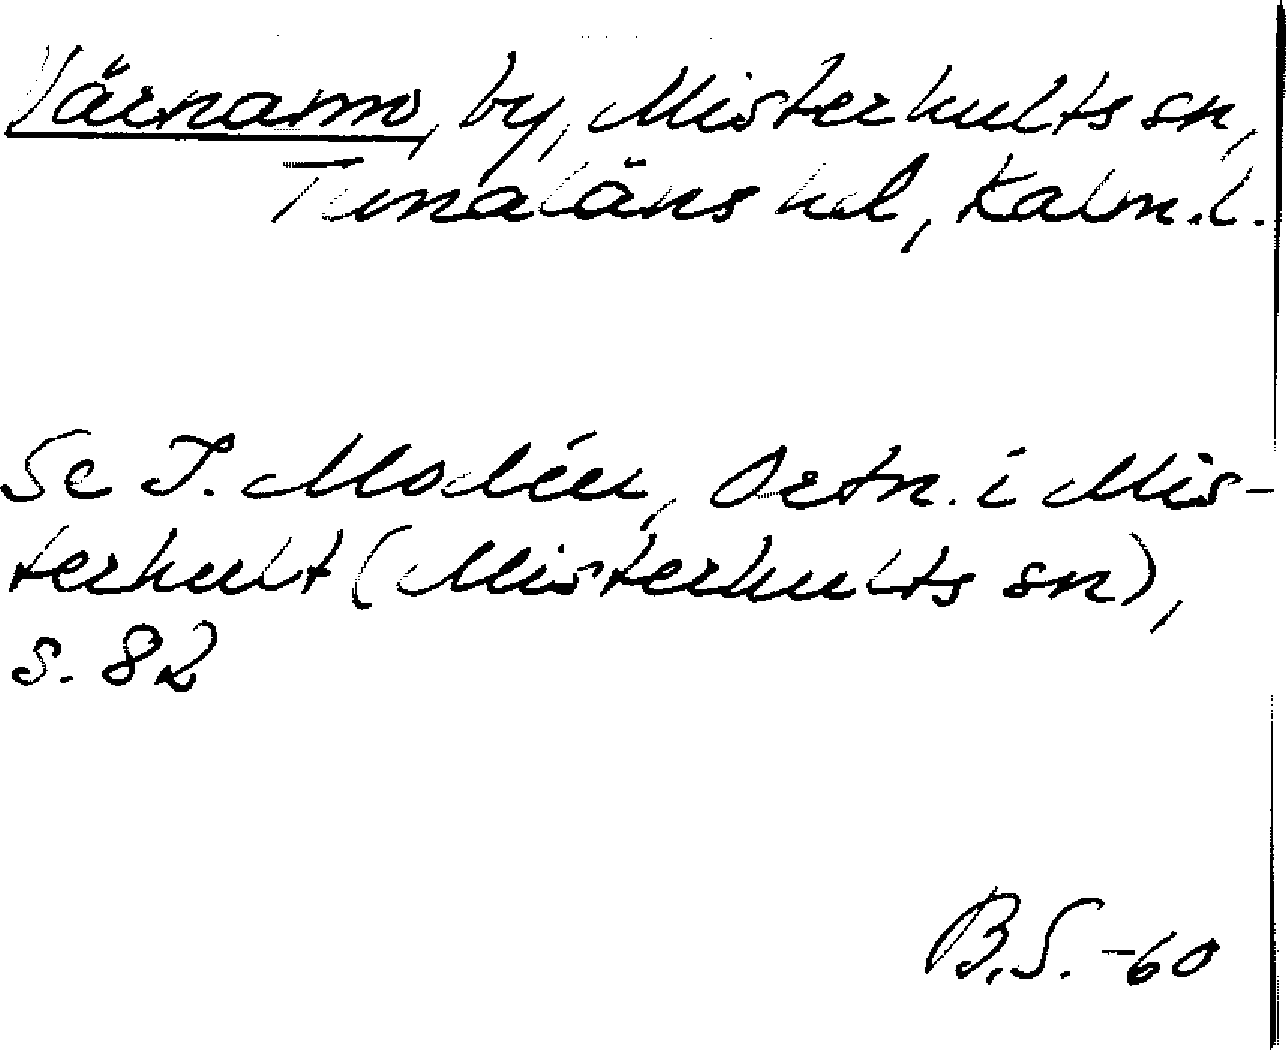 Värnamo, by, Misterhults sn,
Tunaläns hd, Kalm. l.
Se I. Modéer, Ortn. i Mis-
terhult (Misterhults sn),
s. 82
B.S. -60